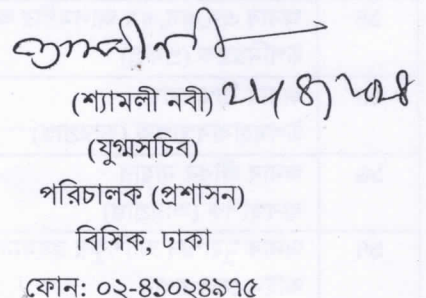 শ্যামলী নবী
(শ্যামলী নবী)
(যুগ্মসচিব)
পরিচালক (প্রশাসন)
বিসিক, ঢাকা
ফোন: ০২-৪১০২৪৯৭৫